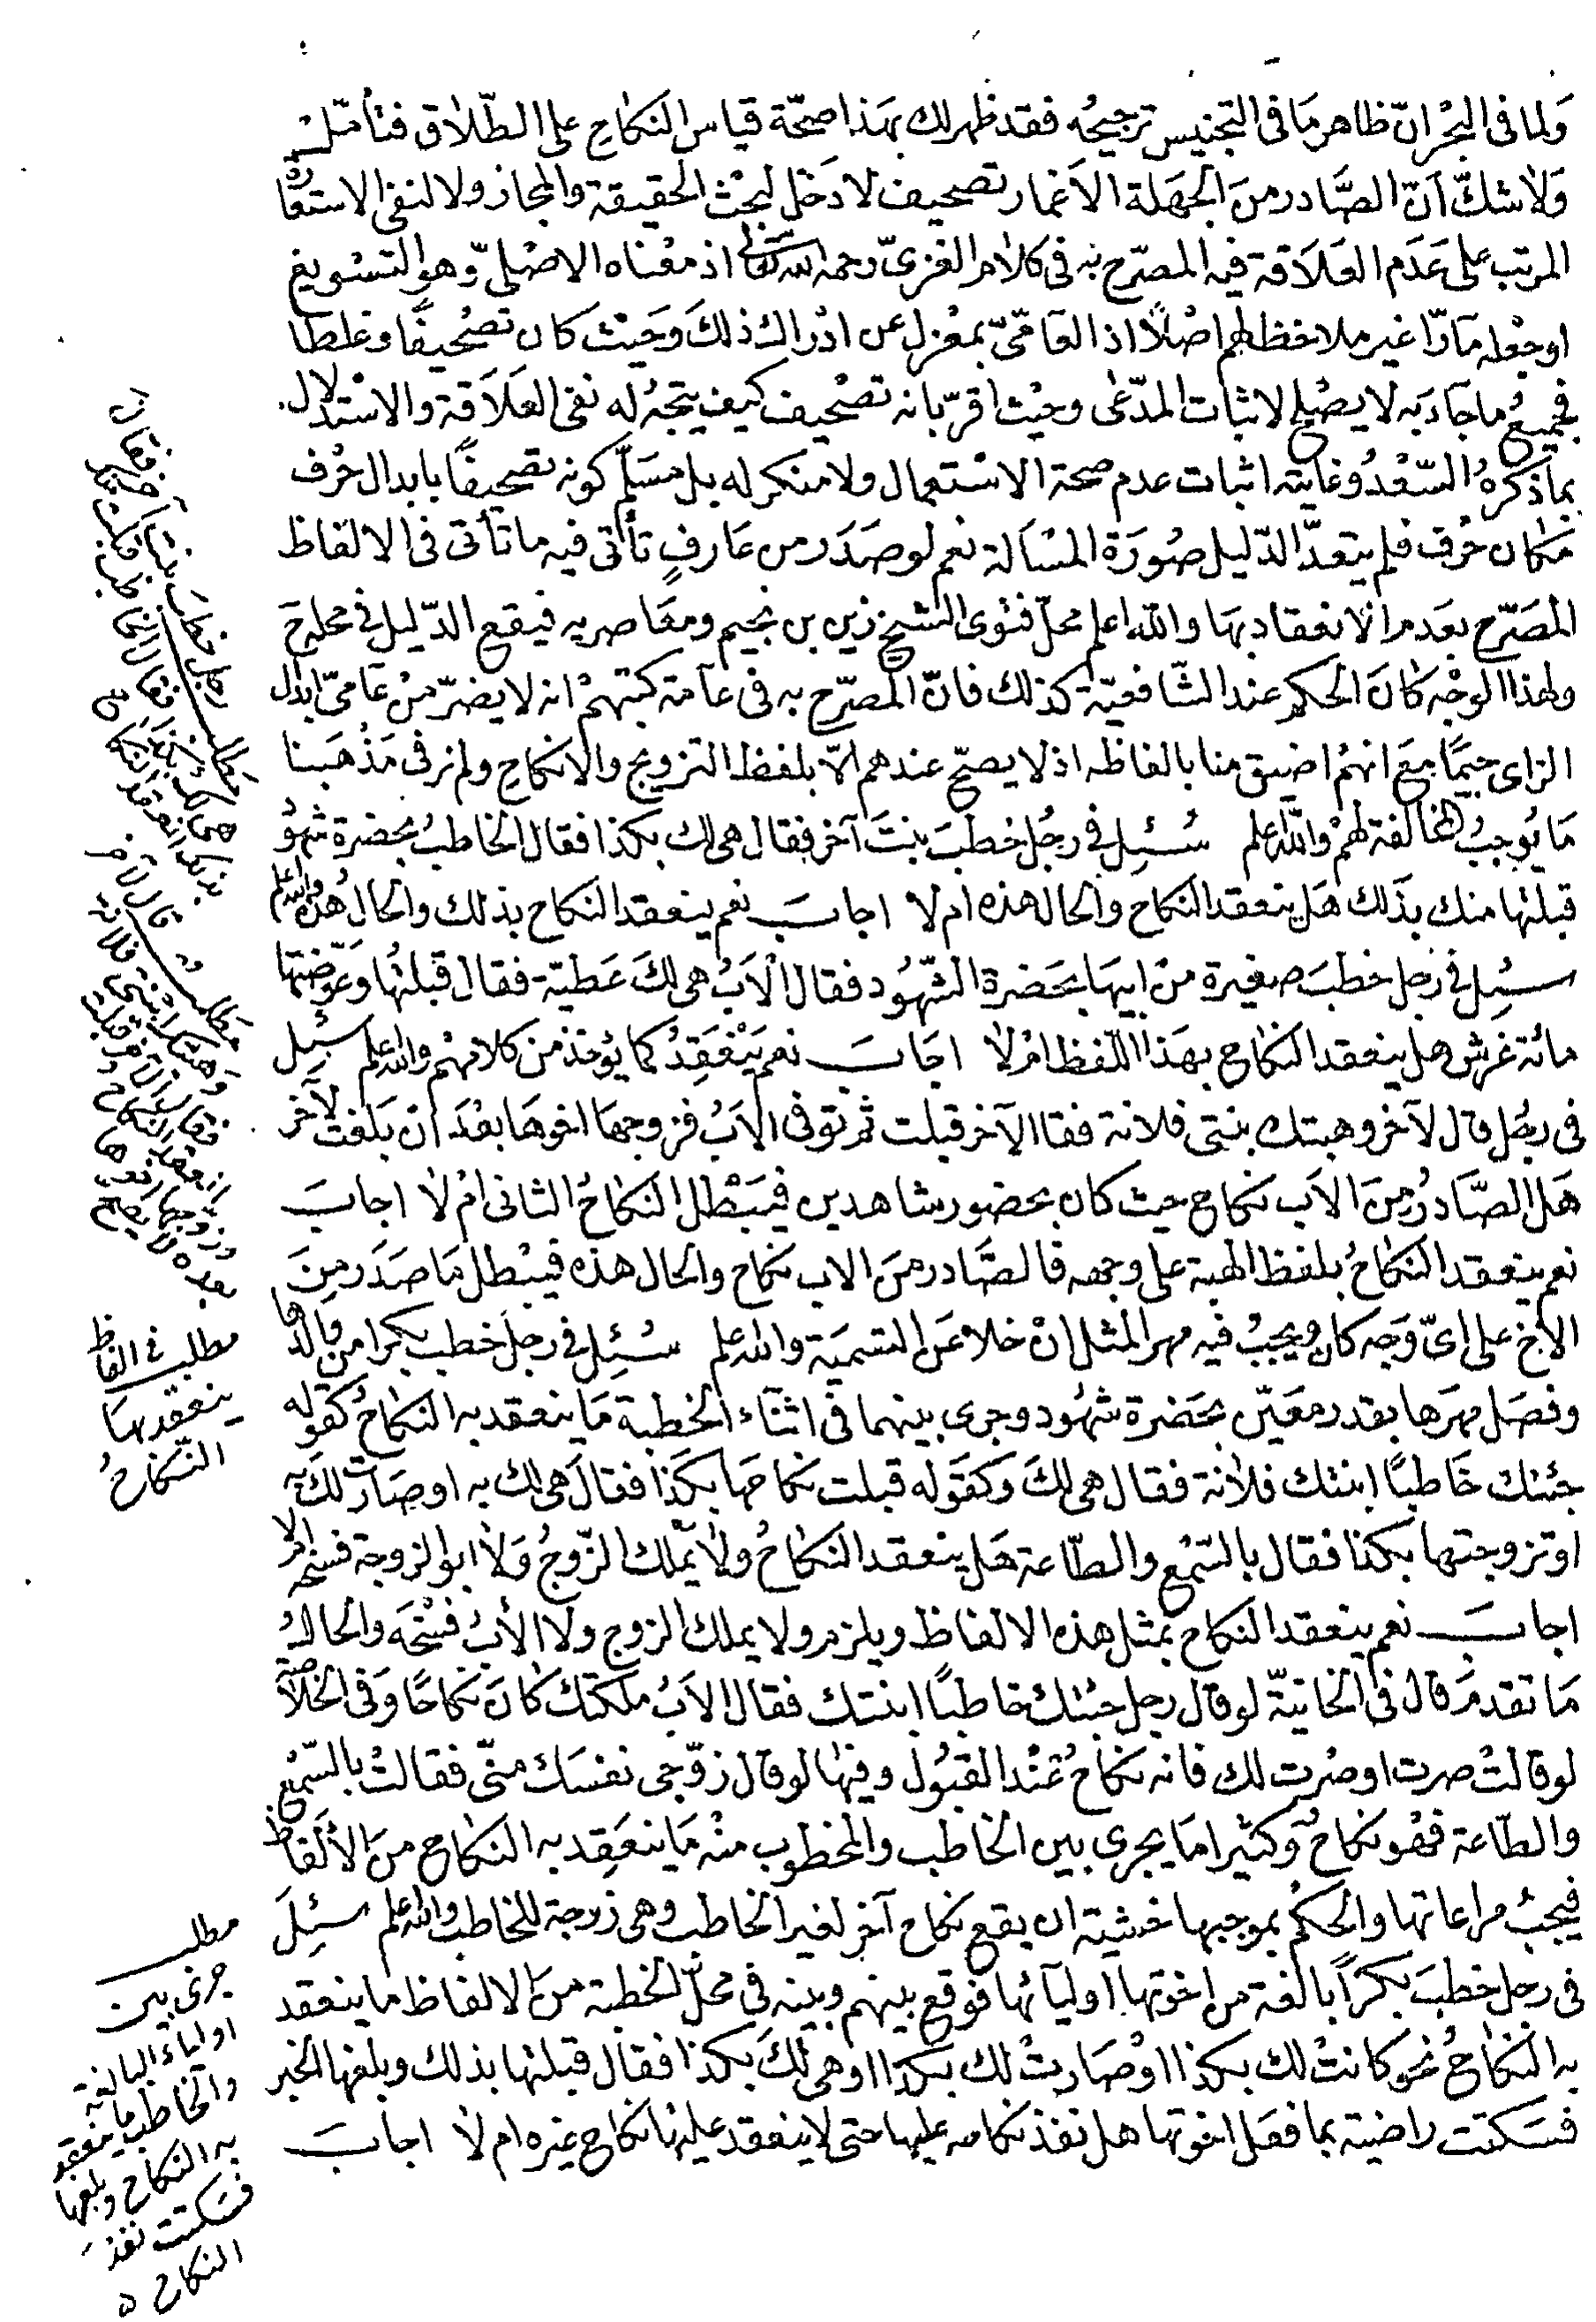 ولما فى البحر ان ظاهر ما فى التجنيس ترجيحه فقد ظهر لك بهذا صحة قياس النكاح على الطلاق فتأمل
ولا شك أن الصادر من الجهلة الاغمار تصحيف لا دخل لبحث الحقيقة والمجاز ولا لنفى الاستعارة
المرتب على عدم العلاقة فيه المصرح به فى كلام الغزى رحمه الله تعالى اذ معناه الاصلى وهو التسويغ
او جعله مارّا غير ملاحظ لهم اصلًا اذ العامّىّ بمعزل عن ادراك ذلك وحيث كان تصحيفًا وغلطا
فجميع ما جاء به لا يصلح لاثبات المدّعى وحيث اقرّ بانه تصحيف كيف يتجه له نفى العلاقة والاستدلال
بما ذكره السّعد وغايته اثبات عدم صحة الاستعمال ولا منكر له بل مسلّم كونه تصحيفًا بابدال حرف
مكان حرف فلم يتعدّ الدّليل صورة المسألة نعم لو صدر من عارفٍ تأتى فيه ما تأتى فى الالفاظ
المصرّح بعدم الانعقاد بها والله اعلم محلّ فتوى الشيخ زين بن نجيم ومعاصريه فيقع الدّليل فى محله ح
ولهذا الوجه كان الحكم عند الشّافعيّة كذلك فانّ المصرّح به فى عامة كتبهم انه لا يضرّ من عامىّ ابدال
الزاى جيمًا مع انهم اضيق منا بالفاظه اذ لا يصحّ عندهم الّا بلفظ التزويج والانكاح ولم نر فى مذهبنا
ما يوجب المخالفة لهم والله اعلم سُئِل فى رجُل خطب بنت آخر فقال هى لك بكذا فقال الخاطبُ بحضرة شهُود
قبلتها منك بذلك هل ينعقد النكاح والحال هذه ام لا اجاب نعم ينعقد النكاح بذلك والحال هذه والله اعلم
سُئِل فى رجل خطب صغيرة من ابيها بحضرة الشّهود فقال الابُ هى لك عطيّة فقال قبلتها وعوّضتها
مائة غرش هل ينعقد النكاح بهذا اللّفظ ام لا اجاب نعم ينعقدُ كما يؤخذ من كلامهم والله اعلم سُئِل
فى رجُل قال لآخر وهبتك بنتى فلانة فقال الآخر قبلت ثم توفى الابُ فزوجها اخوها بعد ان بلغت لآخر
هل الصّادرُ من الاب نكاح حيث كان بحضور شاهدين فيبْطل النكاحُ الثانى ام لا اجاب
نعم ينعقد النكاحُ بلفظ الهبة على وجهه فالصّادر من الاب نكاح والحال هذه فيبطل ما صدر من
الاخ على اىّ وجه كان ويجب فيه مهر المثل ان خلا عن التسمية والله اعلم سُئِل فى رجل خطب بكرا من والدها
وفصل مهرها بقدر معيّن بحضرة شهُود وجرى بينهما فى اثناء الخطبة ما ينعقد به النكاحُ كقوله
جئتك خاطبًا ابنتك فلانة فقال هى لك وكقوله قبلت نكاحها بكذا فقال هى لك به او صارت لك به
او تزوجتها بكذا فقال بالسّمع والطّاعة هل ينعقد النكاحُ ولا يملك الزّوجُ ولا ابو الزوجة فسخه ام لا
اجاب نعم ينعقد النكاح بمثل هذه الالفاظ ويلزم ولا يملك الزوج ولا الأبُ فسْخه والحالُ
ما تقدم قال فى الخانيّة لو قال رجل جئتك خاطبًا ابنتك فقال الابُ ملكتك كان نكاحًا وفى الخلاصة
لو قالتْ صرت او صُرت لك فانه نكاحُ عند القبُول وفيها لو قال زوّجى نفسك منّى فقالتْ بالسّمع
والطّاعة فهو نكاحٌ وكثيرا ما يجرى بين الخاطب والمخطوب منه ما ينعقد به النكاح من الألفاظ
فيجبُ مراعاتها والحكم بموجبها خشية ان يقع نكاح آخر لغير الخاطب وهى زوجة للخاطب والله اعلم سئِل
فى رجل خطب بكرًا بالغة من اخوتها اوليآئها فوقع بينهم وبينه فى محلّ الخطبة من الالفاظ ما ينعقد
به النكاحُ نحو كانتْ لك بكذا او صارتْ لك بكذا او هى لك بكذا فقال قبلتها بذلك وبلغها الخبر
فسكتت راضية بما فعل اخوتها هل نفذ نكاحه عليها حتى لا ينعقد عليها نكاح غيره ام لا اجاب
مطلب رجل خطب بنت آخر فقال
هى لك بكذا فقال الخاطب قبلت
بذلك انعقد النكاح
مطلب قال لآخر
وهبتك ابنتى فلانة
فقال الآخر قبلت
انعقد النكاح
وزوجها اخوها
بعده لا يصح
مطلب فى الفاظ
ينعقد بها
النّكاحُ
مطلب
جرى بين
اولياء البالغة
والخاطب ما ينعقد
به النكاح وبلغها
فسكتت نفذ
النكاح